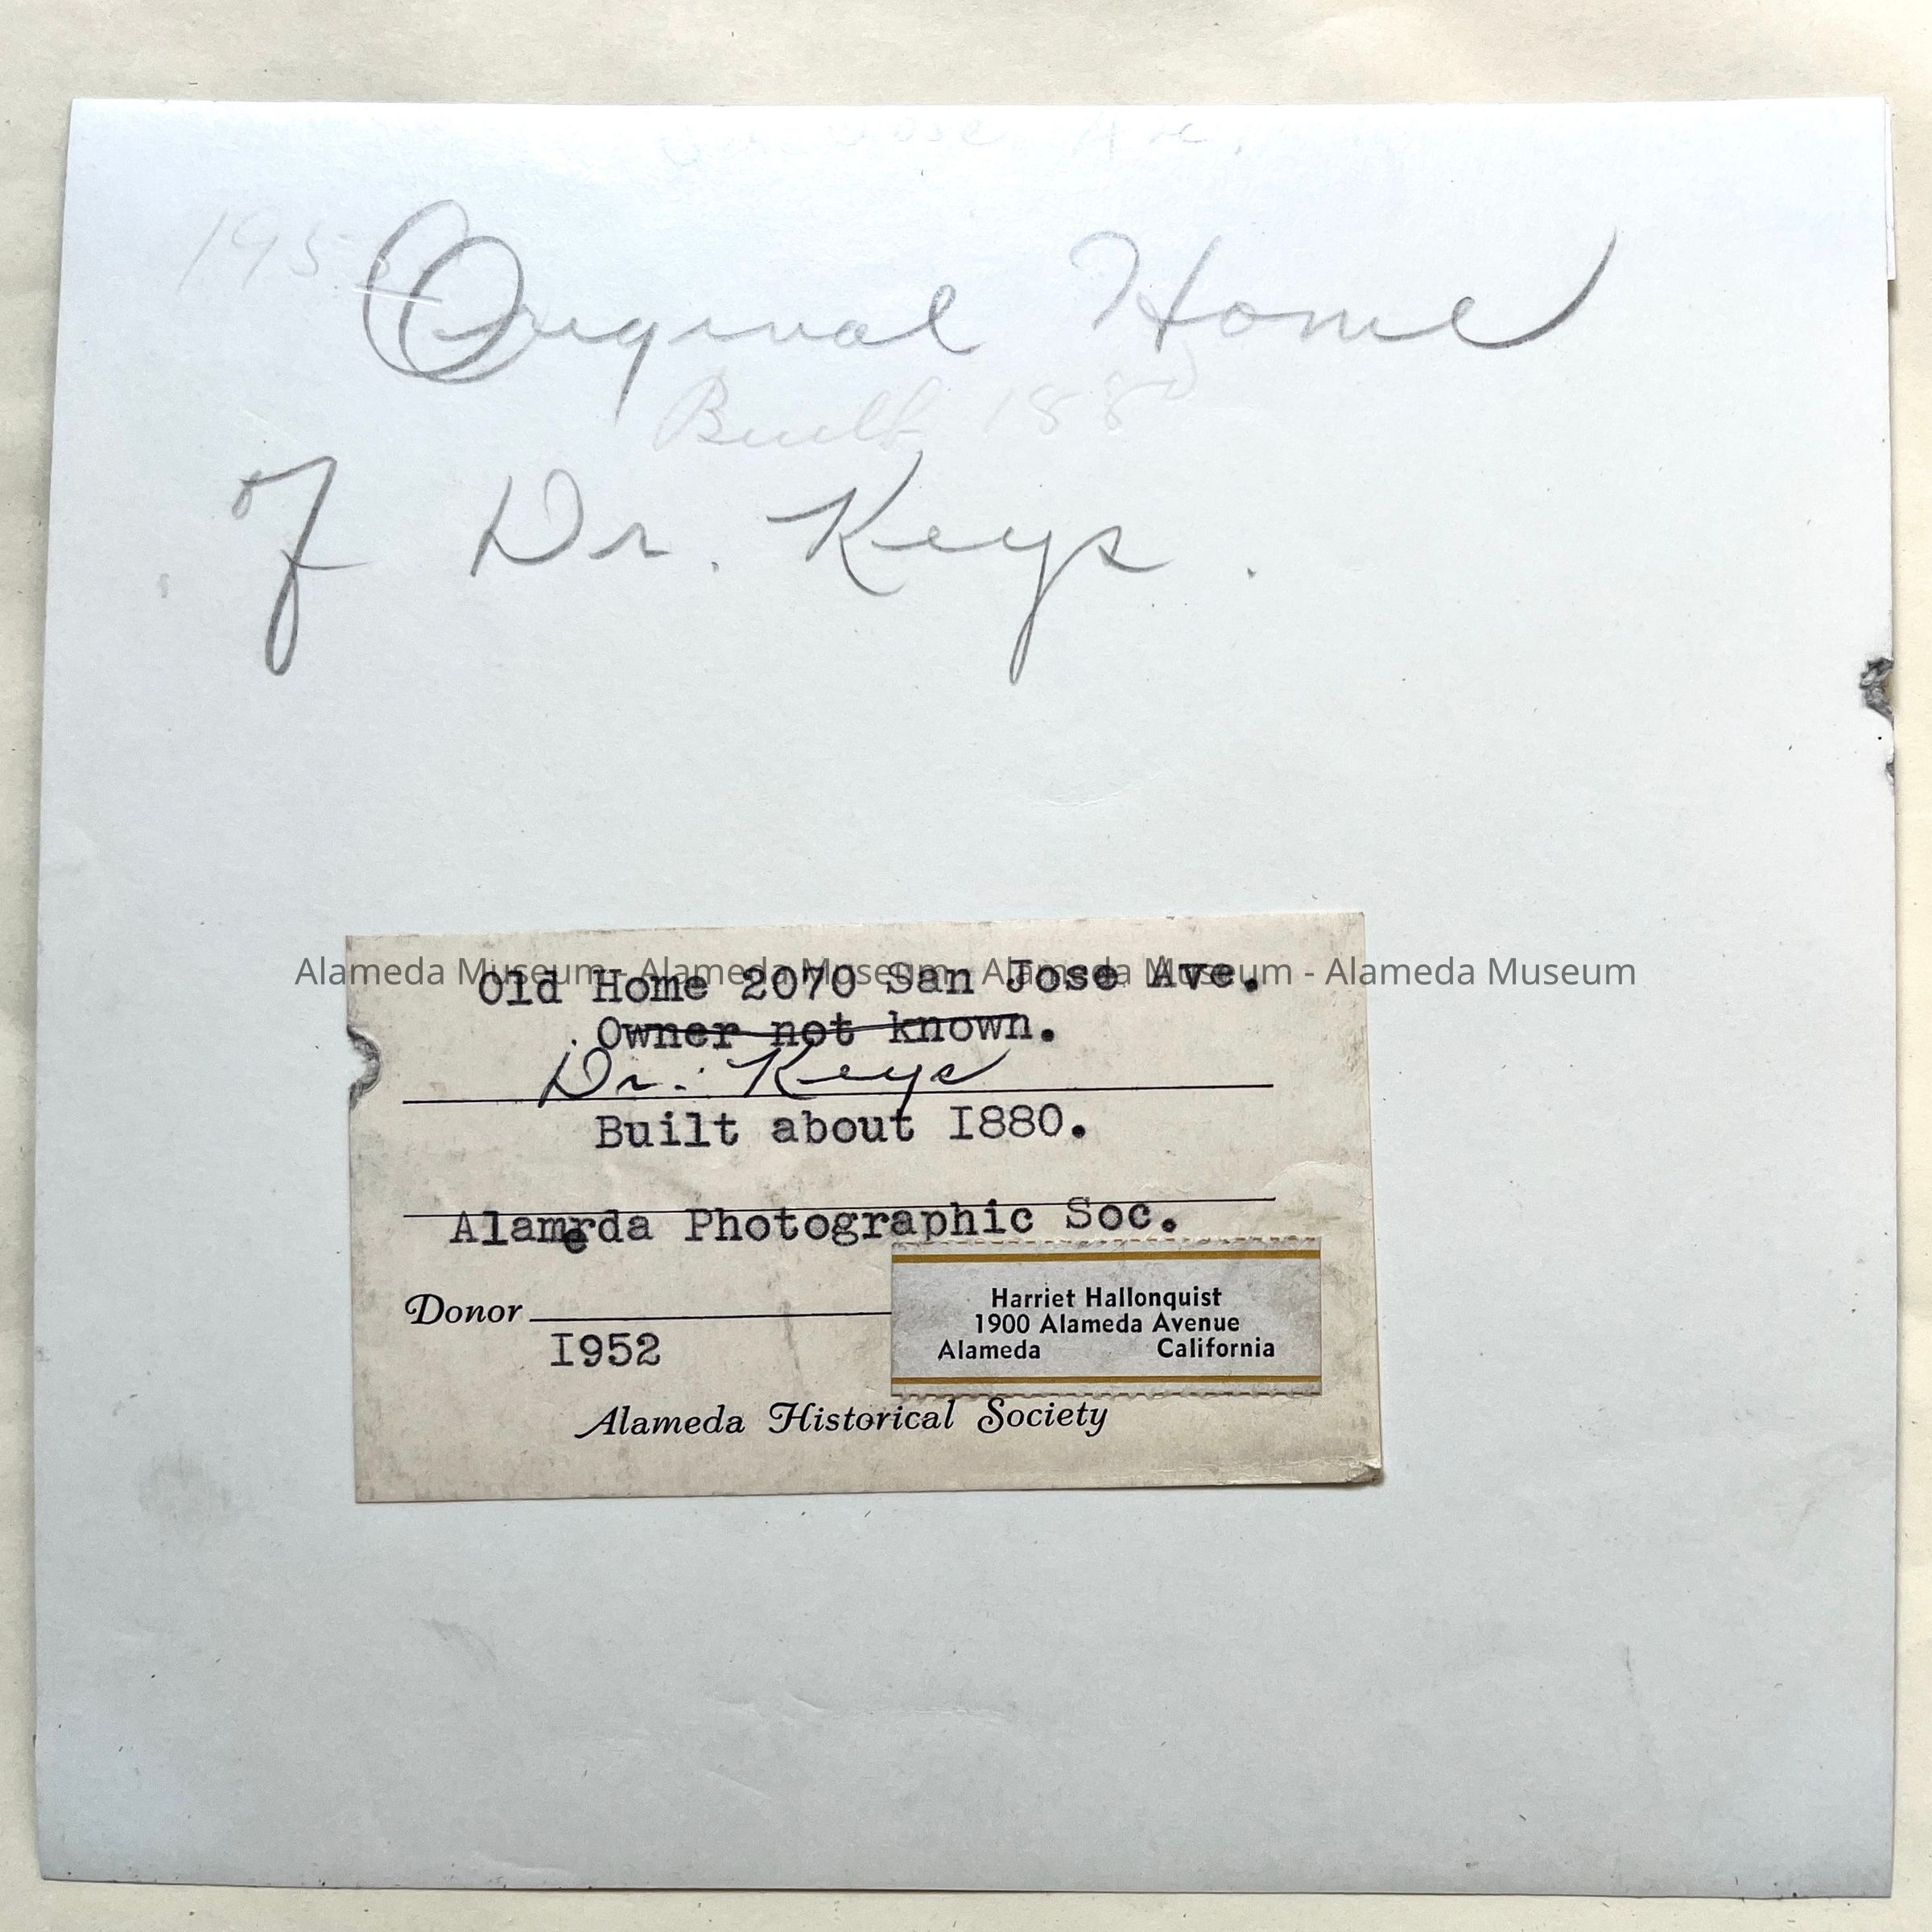 Jose Ave.
195
Original Home
Built 1880
of Dr. Keys.
Alameda Museum - Alameda Museum - Alameda Museum - Alameda Museum
Old Home 2070 San Jose Ave.
Owner not known.
Dr. Keys
Built about I880.
Alameda Photographic Soc.
Harriet Hallonquist
1900 Alameda Avenue
Alameda California
Donor
I952
Alameda Historical Society